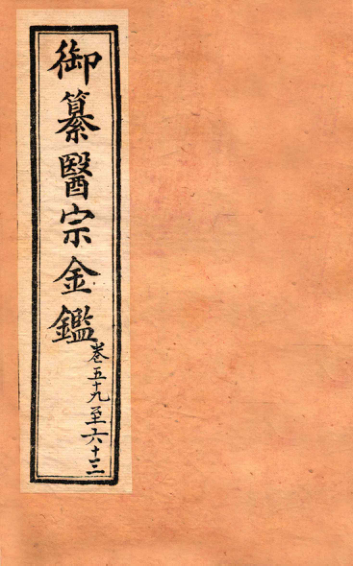 御纂醫宗金鑑
卷五十九至六十三